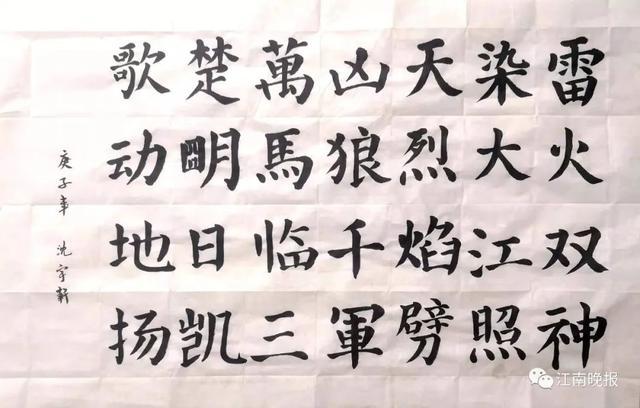 雷火双神
染大江照
天烈焰劈
凶狼千軍
萬馬临三
楚朙日凯
歌动地扬
庚子年 沈宇
江南晚报